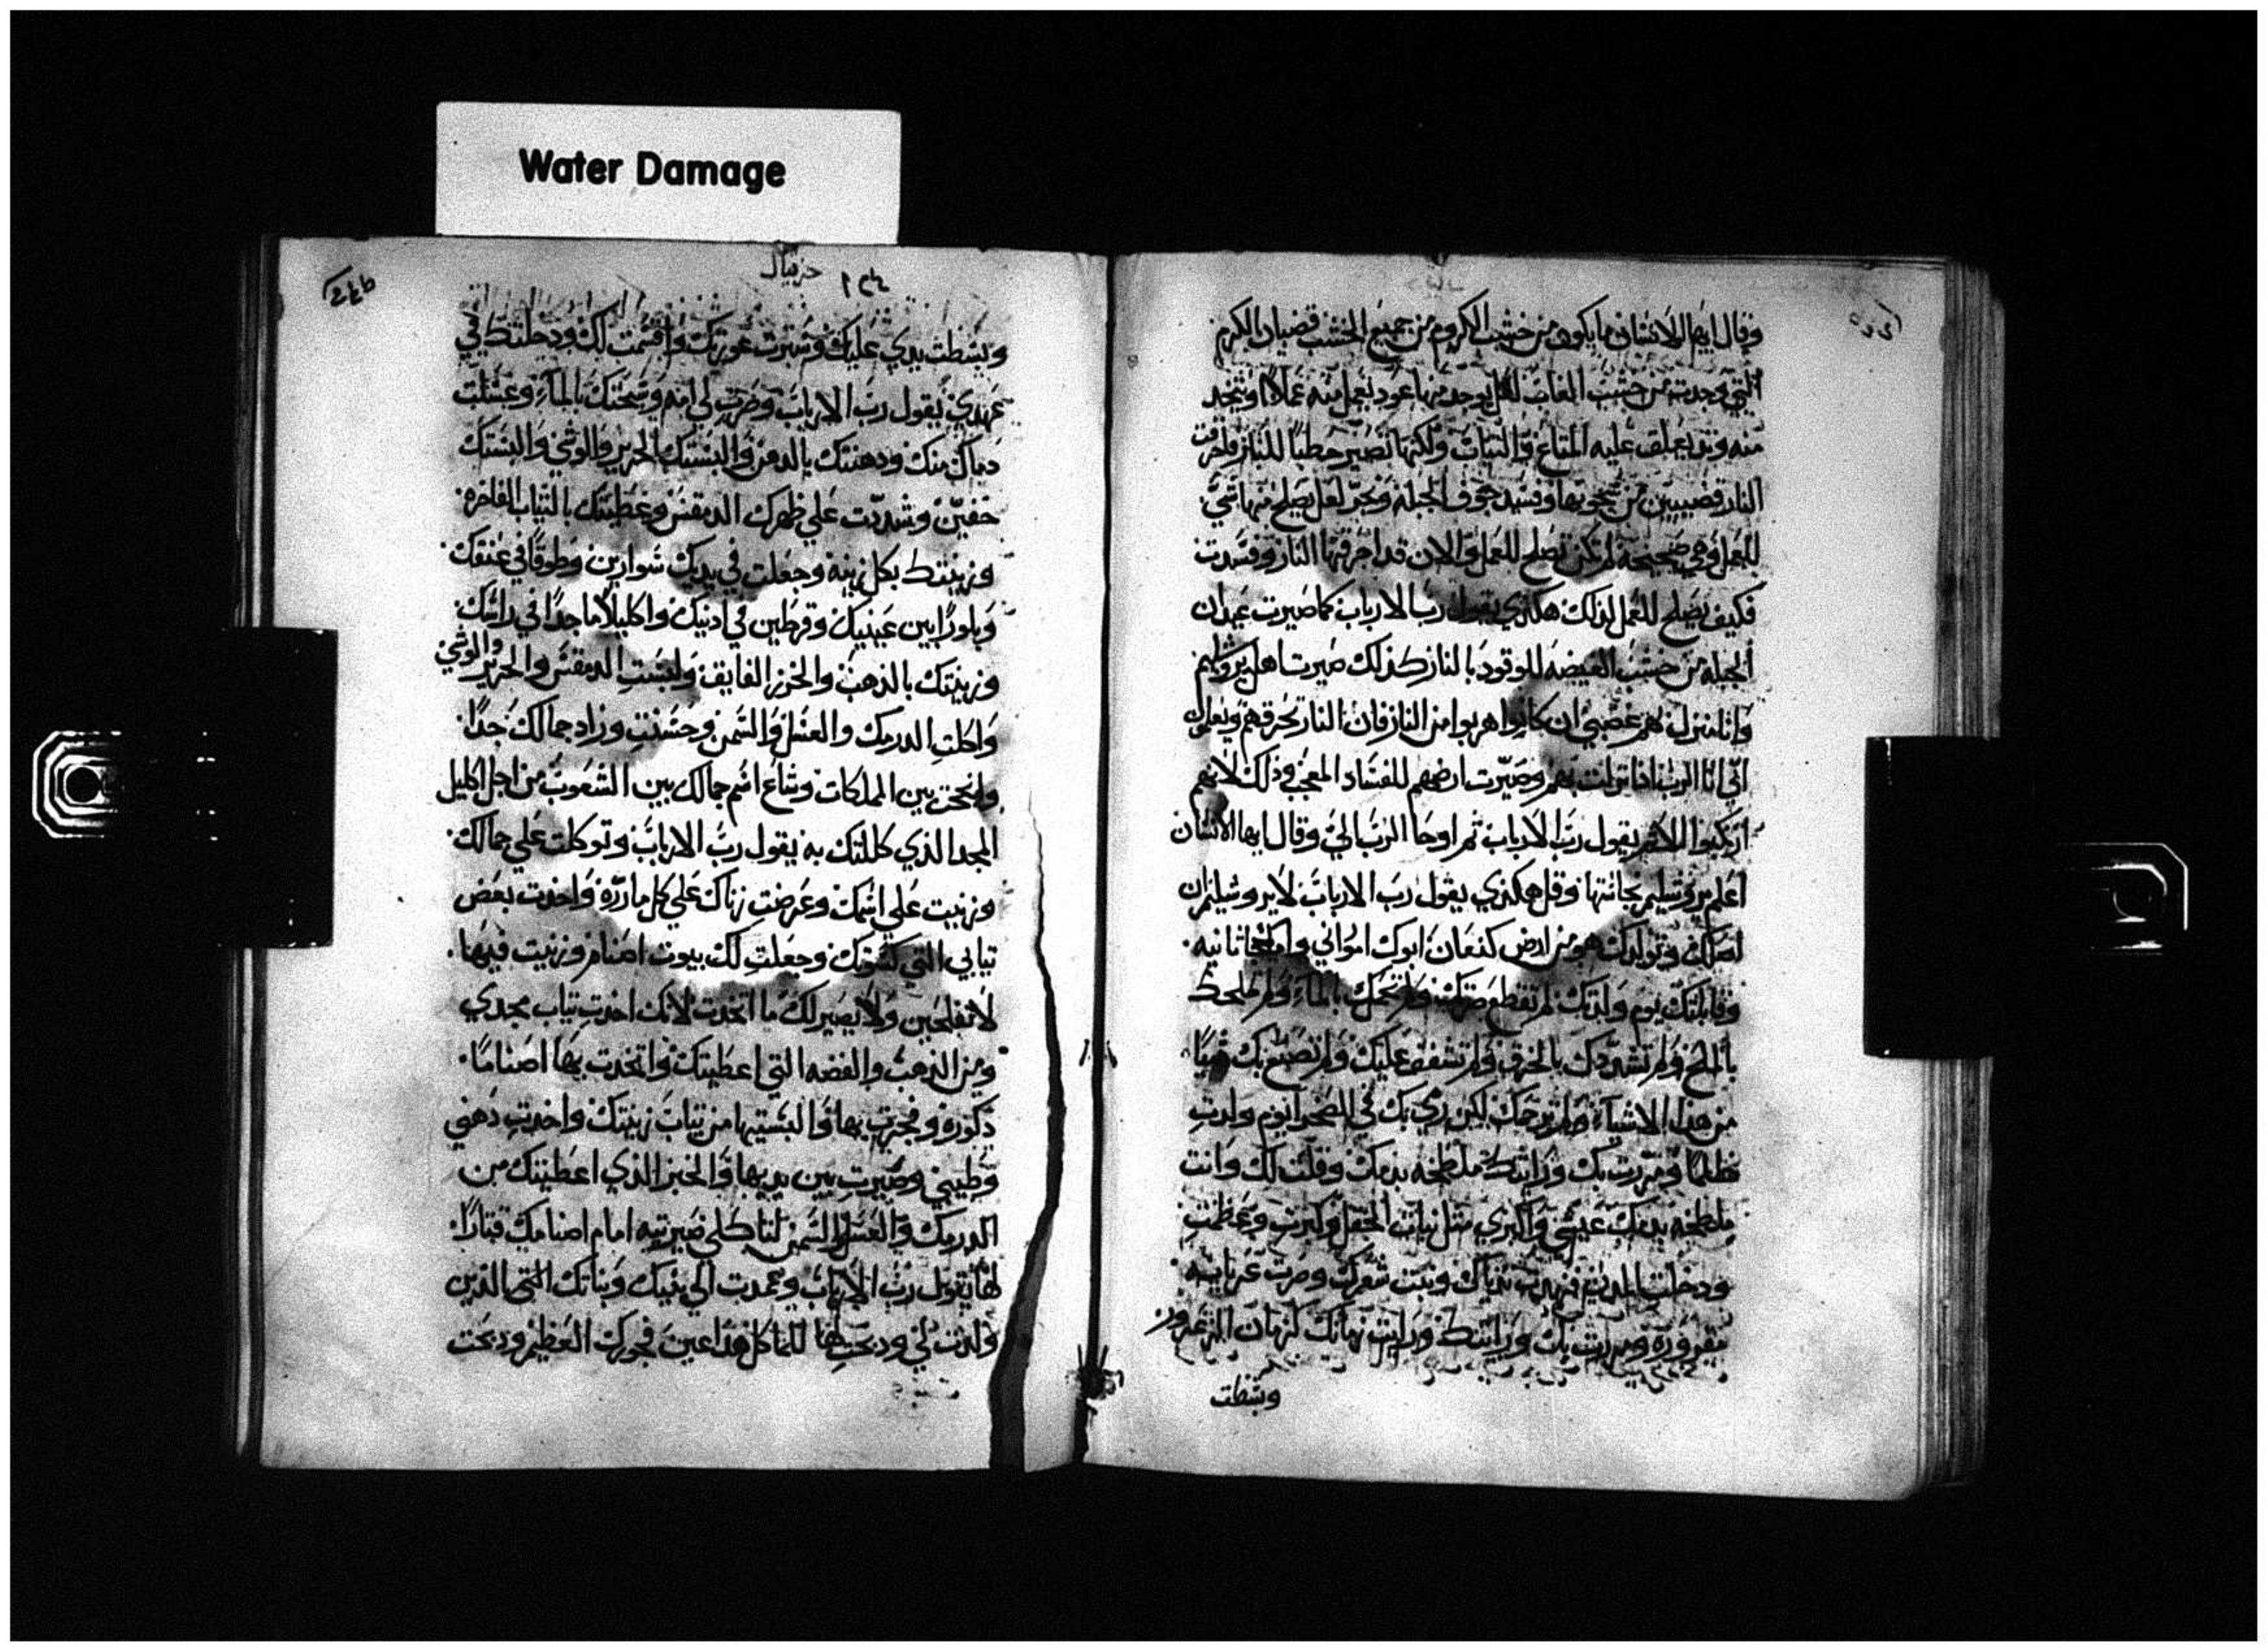 Water Damage
وقال ايها الانسان ما يكون من خشب الكروم من جميع الخشب قضبان الكرم
التي وجدت من خشب الغاض لعل يوجد منها عود يعمل منه عملا او يتخد
منه وتد يعلق عليه المتاع والتياب ولكنها تصير حطبا للنار واحرقت
النار قضيبين من
للعمل وهي صحيحة لم تكن تصلح للعمل والان قد احرقتها النار وفسدت
فكيف يصلح للعمل لذلك هكذي يقول رب الارباب كما صيرت عيدان
الجبلة من خشب الغيضه للوقود بالنار كذلك صيرت اهل يروشليم
وانا منزل بهم غضبي ان كانوا هربوا من النار فان النار تحرقهم ويعلمون
اني انا الرب اذا نزلت بهم وصيرت ارضهم للفساد العجب وذلك لانهم
ارتكبوا الاثم يقول رب الارباب ثم اوحا الرب الي وقال ايها الانسان
اعلم يروشليم نجاستها وقل هكذي يقول رب الارباب لايروشليم ان
اصلك وتولدك هو من ارض كنعان ابوك اموراني وامك حاثانيه
وقابلتك يوم ولدتك لم تقطع سرتك ولم تحمك بالماء ولم تملحك
بالملح ولم تشددك بالخرق ولم تشفق عليك ولم تصنع بك شيا
من هذا الاشياء ولم ترحمك لكن رمي بك في الصحرا يوم ولدت
ظلما ومررت بك ورايتك ملطخه بدمك وقلت لك وانت
ملطخه بدمك عيشي واكبري مثل نبات الحقل وكبرت وعظمت
ودخلت المدن فنهدت تدياك ونبت شعرك وصرت عريانه
مقروره ومررت بك ورايتك ورايت زمانك
وبسطت
حزقيال
وبسطت يدي عليك وسترت عورتك واقسمت لك ودخلتك في
عهدي يقول رب الارباب وصرت لي امه وسحتك بالماء وغسلت
دماك منك ودهنتك بالدهن والبستك الحرير والوشي والبستك
خفين وشددت علي ظهرك الدمقس وغطيتك بالتياب الفاخره
وزينتك بكل زينه وجعلت في يديك سوارين وطوقا في عنقك
وبلورا بين عينيك وقرطين في ادنيك واكليلا ماجدا في راسك
وزينتك بالذهب والخرز الفايق ولبست الدمقس والحرير والوشي
واكلت الدرمك والعسل والسمن وحسنت وزاد جمالك جدا
وانجحت بين المملكات وشاع اسم جمالك بين الشعوب من اجل اكليل
المجد الذي كللتك به يقول رب الارباب وتوكلت علي جمالك
وزنيت علي اسمك وعرضت زناك علي كل ماررة واخدت بعض
تيابي التي كسوتك وجعلت لك بيوت اصنام وزنيت فيها
لا تفلحين ولا يصير لك ما اتخدت لانك اخدت تياب مجدي
ومن الذهب والفضه التي اعطيتك واتخدت بها اصناما
ذكورة وفجرت بها والبستيها من تياب زينتك واخدت دهني
وطيبي وصيرت بين يديها والخبز الذي اعطيتك من
الدرمك والعسل والسمن لتاكلي صيرتيه امام اصنامك قتارا
لها يقول رب الارباب وعمدت الي بنيك وبناتك التي الذين
ولدت لي ودبحت لها للماكل هذا عين فجورك العظيم ودبحت